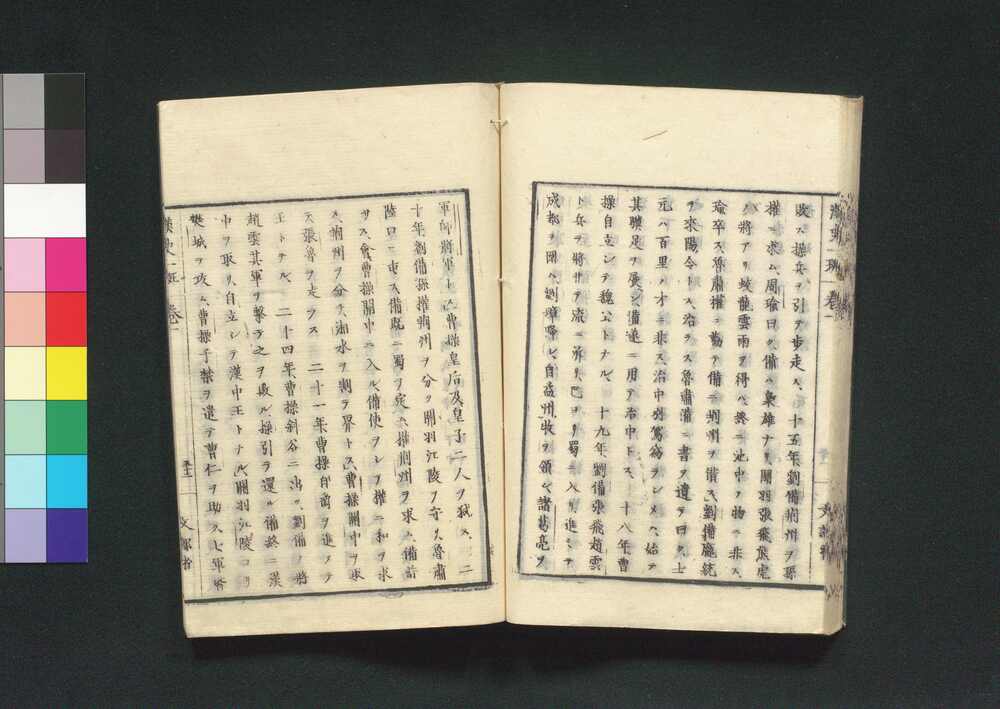 敗ス操兵ヲ引テ歩走ス、十五年劉備荊州ヲ孫
權ニ求ム、周瑜曰ク、備ハ梟雄ナリ、關羽張飛熊虎
ノ將アリ、蛟龍雲雨ヲ得ハ終ニ池中ノ物ニ非ス、
瑜卒ス魯肅權ニ勸テ備ニ荊州ヲ借ス、劉備龐統
ヲ耒陽令トス、治ラス魯肅備ニ書ヲ遺テ曰ク、士
元ハ百里ノ才ニ非ス、治中別駕爲ラシメハ、始テ
其驥足ヲ展ン、備遂ニ用テ治中トス、十八年曹
操自立シテ魏公トナル、十九年、劉備張飛趙雲
ト兵ヲ將サテ流ニ泝リ巴ヨリ蜀ニ入リ、進ミテ
成都ヲ圍ム、劉璋降ル、自益州牧ヲ領ソ諸葛亮ヲ
漢史一班 卷一
文部省
軍師將軍トス、曹操皇后及皇子二人ヲ弑ス、二
十年劉備孫權荊州ヲ分ツ、關羽江陵ヲ守リ、魯肅
陸口ニ屯ス、備既ニ蜀ヲ定ム、權荊州ヲ求ム、備許
サス、會曹操關中ニ入ル、備使ヲシテ權ニ和ヲ求
ム、荊州ヲ分ス、湘水ヲ割ヲ界トス、曹操關中ヲ取
ス張魯ヲ走ラス 二十一年曹操自爵ヲ進メテ
王トナル、二十四年曹操斜谷ニ出ツ、劉備ノ將
趙雲其軍ヲ擊テ之ヲ敗ル、操引ヲ還ル、備終ニ漢
中ヲ取リ、自立シテ漢中王トナル、關羽江陵ヨリ
樊城ヲ攻ム、曹操于禁ヲ遣テ曹仁ヲ助ス、七軍皆
漢史一班 卷一
文部省